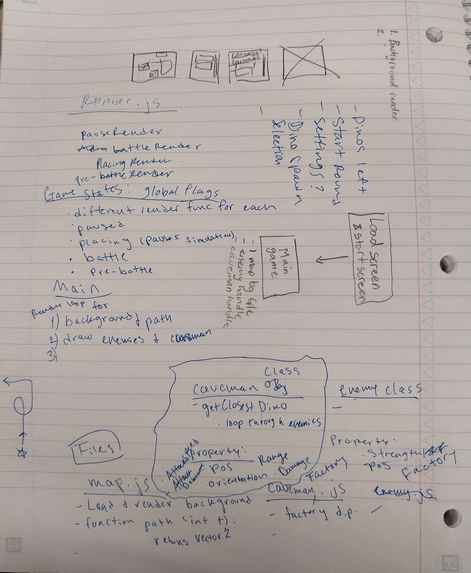 1. Background render
2.
- Dinos left
- Start Round
- Settings?
- Dino Spawn Selection
Load screen & start screen
Main game
- map bg tile
- enemy handle
- caveman handle
Renner.js
pauseRender
battle Render
Placing Render
pre-battle Render
Game States: global flags
• different render func for each
• paused
• placing (pauses simulation)
• battle
• pre-battle
Main
loop for
1) background & path
2) draw enemies & caveman
3)
class
caveman Obj
- getClosest Dino
• loop through enemies
Property:
Pos
Range
orientation
Damage
Factory
enemy class
-
Property:
Strength
Pos
factory
enemy.js
Files
map.js
- Load & render background
- function path (int t)
returns vector2
caveman.js
- factory d.p.
-